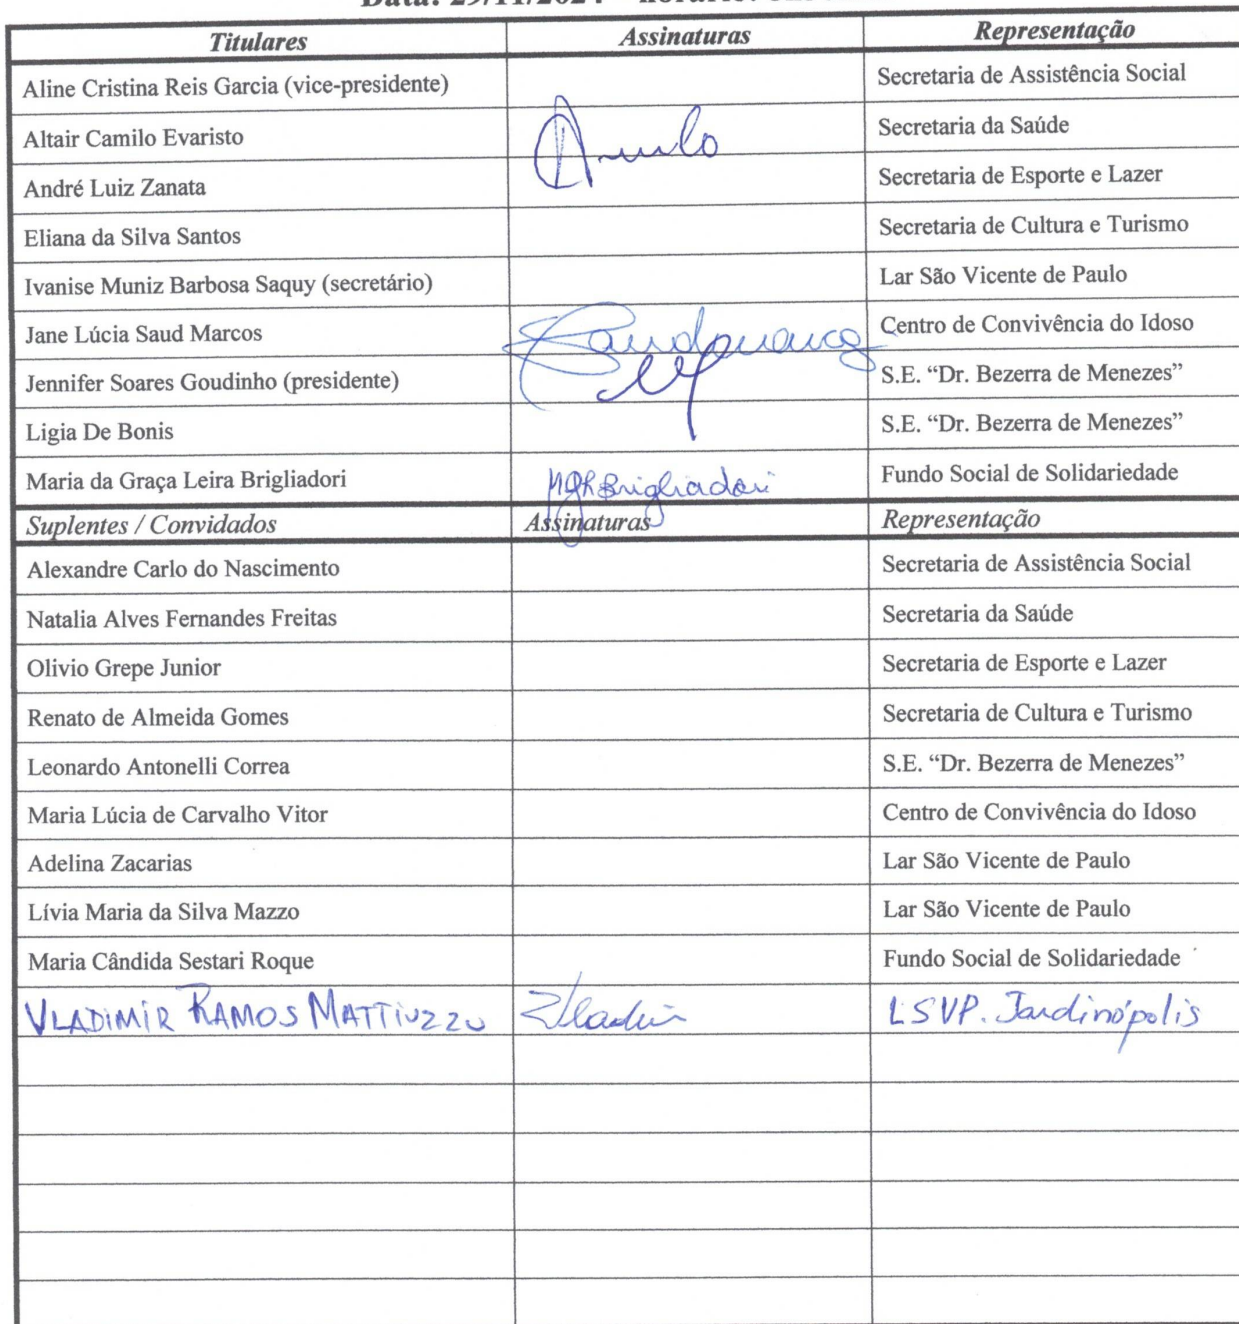 Data: 29/11/2024
Titulares Assinaturas Representação
Aline Cristina Reis Garcia (vice-presidente) Secretaria de Assistência Social
Altair Camilo Evaristo Secretaria da Saúde
André Luiz Zanata Secretaria de Esporte e Lazer
Eliana da Silva Santos Secretaria de Cultura e Turismo
Ivanise Muniz Barbosa Saquy (secretário) Lar São Vicente de Paulo
Jane Lúcia Saud Marcos Centro de Convivência do Idoso
Jennifer Soares Goudinho (presidente) S.E. “Dr. Bezerra de Menezes”
Ligia De Bonis S.E. “Dr. Bezerra de Menezes”
Maria da Graça Leira Brigliadori Fundo Social de Solidariedade
Suplentes / Convidados Assinaturas Representação
Alexandre Carlo do Nascimento Secretaria de Assistência Social
Natalia Alves Fernandes Freitas Secretaria da Saúde
Olivio Grepe Junior Secretaria de Esporte e Lazer
Renato de Almeida Gomes Secretaria de Cultura e Turismo
Leonardo Antonelli Correa S.E. “Dr. Bezerra de Menezes”
Maria Lúcia de Carvalho Vitor Centro de Convivência do Idoso
Adelina Zacarias Lar São Vicente de Paulo
Lívia Maria da Silva Mazzo Lar São Vicente de Paulo
Maria Cândida Sestari Roque Fundo Social de Solidariedade
VLADIMIR RAMOS MATTIUZZO LSVP. Jardinópolis